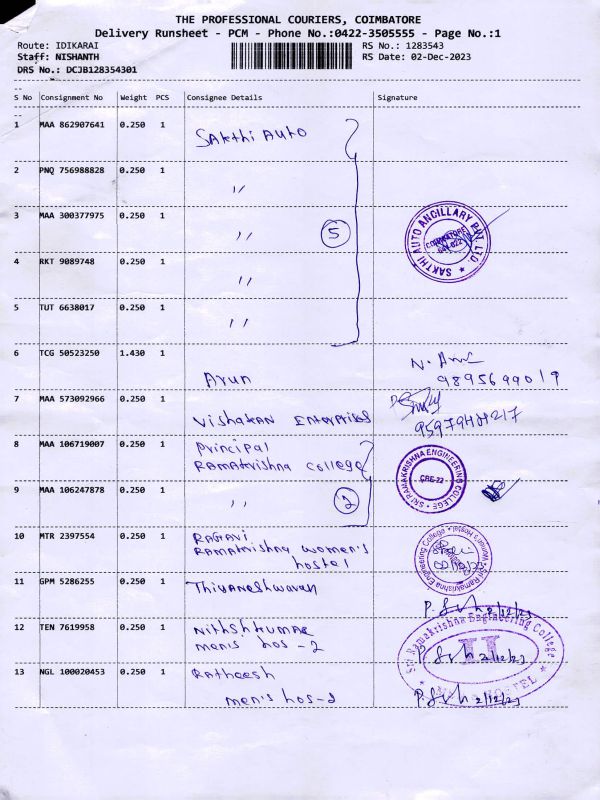 THE PROFESSIONAL COURIERS, COIMBATORE
Delivery Runsheet - PCM - Phone No.:0422-3505555 - Page No.:1
Route: IDIKARAI RS No.: 1283543
Staff: NISHANTH RS Date: 02-Dec-2023
DRS No.: DCJB128354301
S No Consignment No Weight PCS Consignee Details Signature
1 MAA 862907641 0.250 1 Sakthi Auto
2 PNQ 756988828 0.250 1 〃
3 MAA 300377975 0.250 1 〃 5
SAKTHI AUTO ANCILLARY PVT. LTD. ★
COIMBATORE
4 RKT 9089748 0.250 1 〃
5 TUT 6638017 0.250 1 〃
6 TCG 50523250 1.430 1 Arun
9895699019
7 MAA 573092966 0.250 1 Vishakan Enterprises
8 MAA 106719007 0.250 1 Principal
Ramakrishna College
SRI RAMAKRISHNA ENGINEERING COLLEGE
CBE-22
9 MAA 106247878 0.250 1 〃 2
10 MTR 2397554 0.250 1 RAGAVI
Ramakrishna women's
hostel
Sri Ramakrishna Engineering College Women's Hostel
11 GPM 5286255 0.250 1
2/12/23
12 TEN 7619958 0.250 1
men's hos - 2
2/12/23
Sri Ramakrishna Engineering College
II
HOSTEL
13 NGL 100020453 0.250 1 Ratheesh
men's hos-2
2/12/23